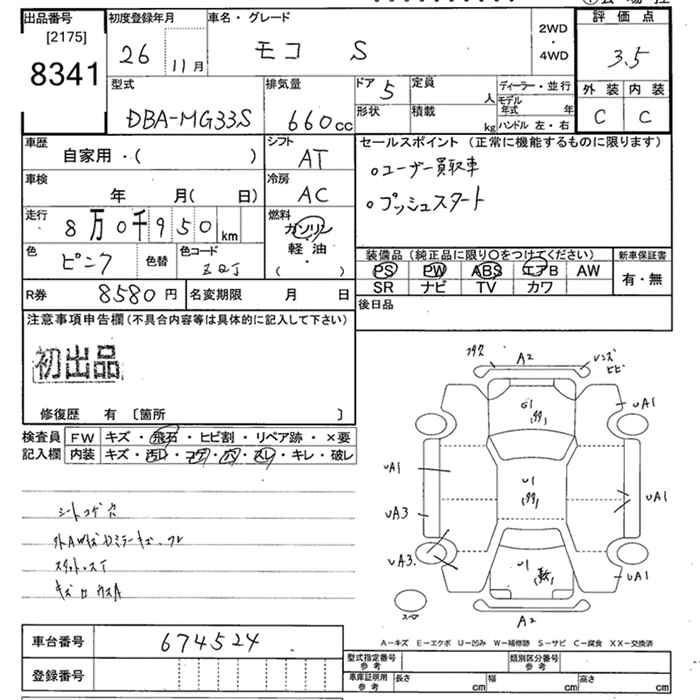 出品番号
[2175]
8341
初度登録年月
26 11月
車名・グレード
モコ S
2WD
・
4WD
評価点
3.5
外装 内装
C C
型式
DBA-MG33S
排気量
660cc
ドア 5
形状
定員 人
積載 kg
ディーラー・並行
モデル年式 年
ハンドル 左・右
車歴
自家用・( )
シフト
AT
車検
年 月( 日)
冷房
AC
走行
8万0千950 km
燃料
ガソリン
軽油
( )
色
ピンク
色替
色コード
R券 8580円
名変期限 月 日
セールスポイント (正常に機能するものに限ります)
。ユーザー買取車
。プッシュスタート
装備品 (純正品に限り○をつけてください)
PS PW ABS エアB AW
SR ナビ TV カワ
新車保証書
有・無
後日品
注意事項申告欄 (不具合内容等は具体的に記入して下さい)
初出品
修復歴 有 〔箇所 〕
検査員
記入欄
FW キズ・飛石・ヒビ割・リペア跡・×要
内装 キズ・汚レ・コゲ・穴・スレ・キレ・破レ
シートコゲ穴
A2
レンズ
ヒビ
UA1
G1
UA1
UA3
U1
UA1
UA3.
U1
UA1
スペア
A2
A-キズ E-エクボ U-凹み W-補修跡 S-サビ C-腐食 XX-交換済
車台番号 674524
登録番号
型式指定番号
参考
類別区分番号
参考
車庫証明用
参考
長さ cm 幅 cm 高さ cm